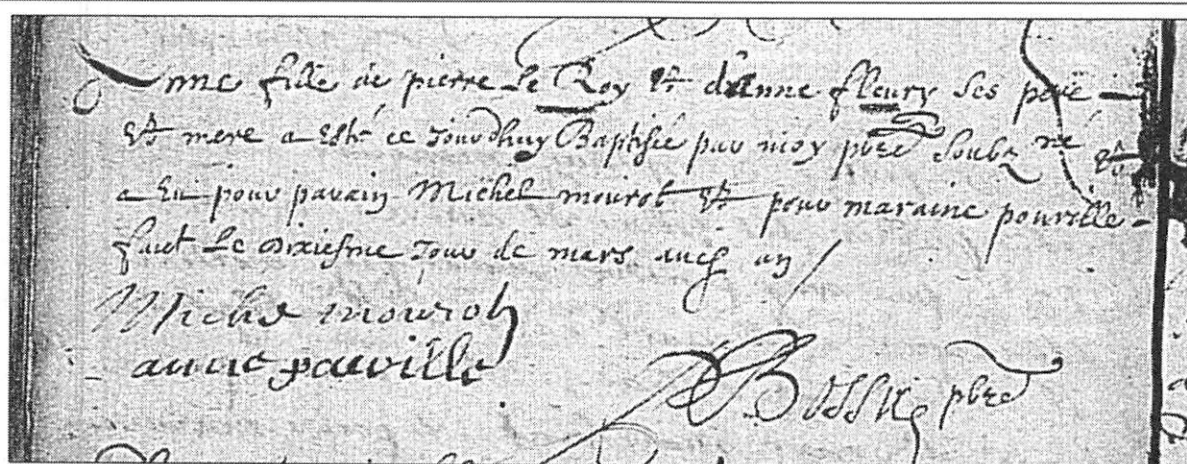 Anne fille de pierre Le Roy Et d'anne fleury ses père
Et mere a Esté ce Jourdhuy Baptisée par moy pbre soubz né Et
a Eu pour parain Michel mourot Et pour maraine pourille
faict Le dixiesme Jour de mars an
Michel mourot
anne
pbre